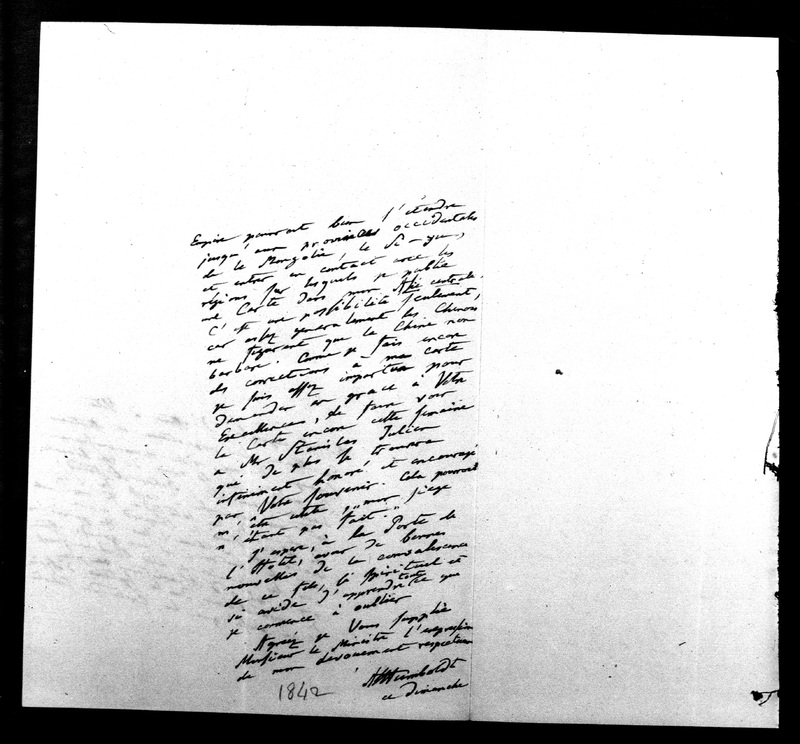 Empire pourrait bien s'étendre
jusqu'aux provinces occidentales
de la Mongolie, le Si-yu,
et entrer en contact avec les
régions sur lesquels je publie
une Carte dans mon Asie centrale.
C'est une possibilité seulement,
car assez generalement les Chinois
ne figurant que la Chine non
barbare. Come je fais encore
des corrections a ma carte
je suis assez importun pour
demander en grace à Votre
Excellence, de faire voir
la Carte encore cette semaine
a Mr Stanislas Julien
qui de plus se trouvera
infiniment honoré et encouragé
par Votre souvenir. Cela pourroit
m'être utile, mur siege
n'étant pas fait.
J'espere, à la Porte de
l'Hotel, avoir de bonnes
nouvelles de la convalescence
de ce fils, si spirituel et
si avide d'apprendre tout ce que
je comence à oublier
Agréez je Vous supplie
Monsieur le Ministre l'expression
de mon devouement respectueux
AlHumboldt
ce dimanche
1842